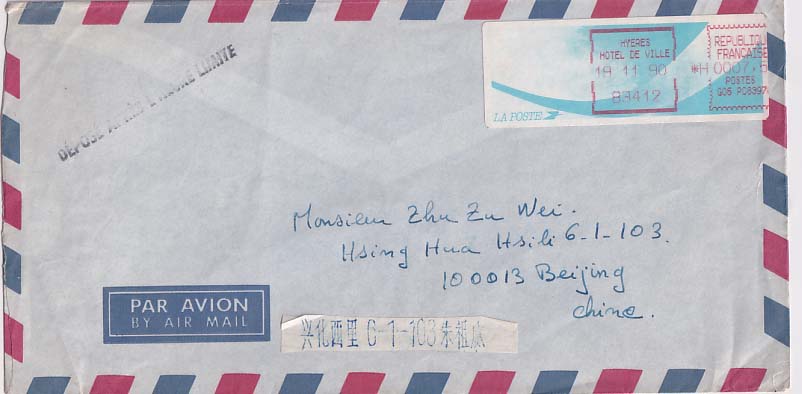 DÉPOSÉ APRÈS L'HEURE LIMITE
HYERES
HOTEL DE VILLE
19 11 90
83412
REPUBLIQUE
FRANÇAISE
*H 0007,5
POSTES
LA POSTE
Monsieur Zhu Zu Wei.
Hsing Hua Hsili 6-1-103.
100013 Beijing
Chine.
PAR AVION
BY AIR MAIL
兴化西里 6-1-103 朱祖威